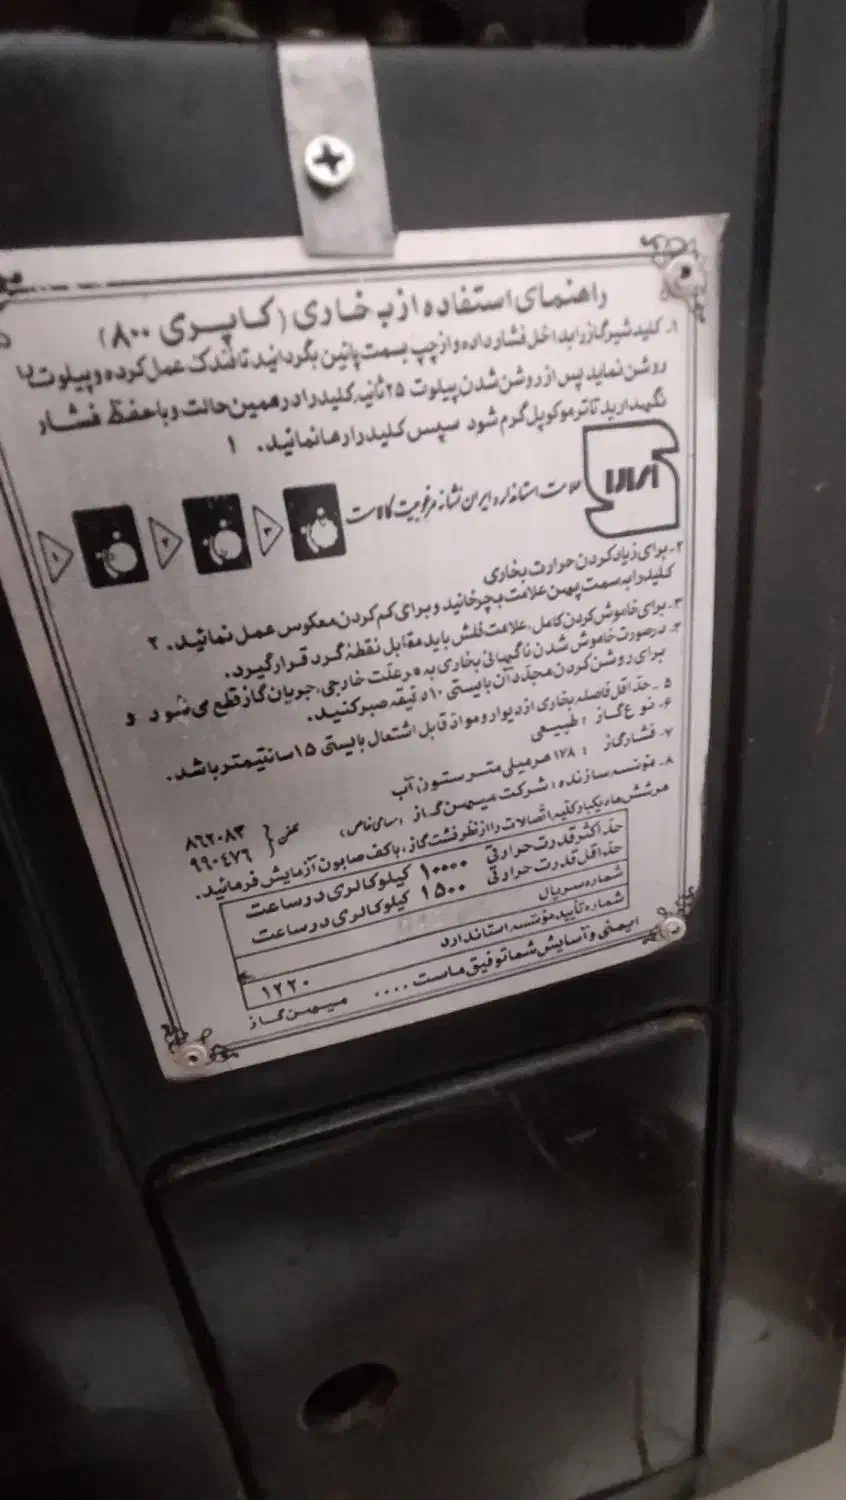 راهنمای استفاده از بخاری (کاپری ۸۰۰)
۱ـ کلید شیر گاز را بداخل فشار داده و از چپ بسمت پائین بگردانید تا فندک عمل کرده و پیلوت را
روشن نماید پس از روشن شدن پیلوت ۲۵ ثانیه کلید را در همین حالت و با حفظ فشار
نگهدارید تا ترموکوپل گرم شود سپس کلید را رها نمائید. ۱
علامت استاندارد ایران نشانه مرغوبیت کالاست
۳ ۲ ۱
۲ـ برای زیاد کردن حرارت بخاری
کلید را به سمت پهن علامت بچرخانید و برای کم کردن معکوس عمل نمائید. ۲
۳ـ برای خاموش کردن کامل، علامت فلش باید مقابل نقطه گرد قرار گیرد.
۴ـ در صورت خاموش شدن ناگهانی بخاری به هر علت خارجی، جریان گاز قطع می شود و
برای روشن کردن مجدد آن بایستی ۱۰ دقیقه صبر کنید.
۵ـ حداقل فاصله بخاری از دیوار و مواد قابل اشتعال بایستی ۱۵ سانتیمتر باشد.
۶ـ نوع گاز : طبیعی
۷ـ فشار گاز : ۱۷۸ میلی متر ستون آب
۸ـ مؤسسه سازنده : شرکت میهن گاز (سامی خاص) تلفن { ۸۶۲۰۸۳
۹۹۰۴۷۶
هر شش ماه یکبار کلیه اتصالات را از نظر نشت گاز، با کف صابون آزمایش فرمائید.
حداکثر قدرت حرارتی ۱۰۰۰۰ کیلو کالری در ساعت
حداقل قدرت حرارتی ۱۵۰۰ کیلو کالری در ساعت
شماره سریال
شماره تأیید مؤسسه استاندارد ۱۲۲۰
ایمنی و آسایش شما توفیق ماست .... میهن گاز